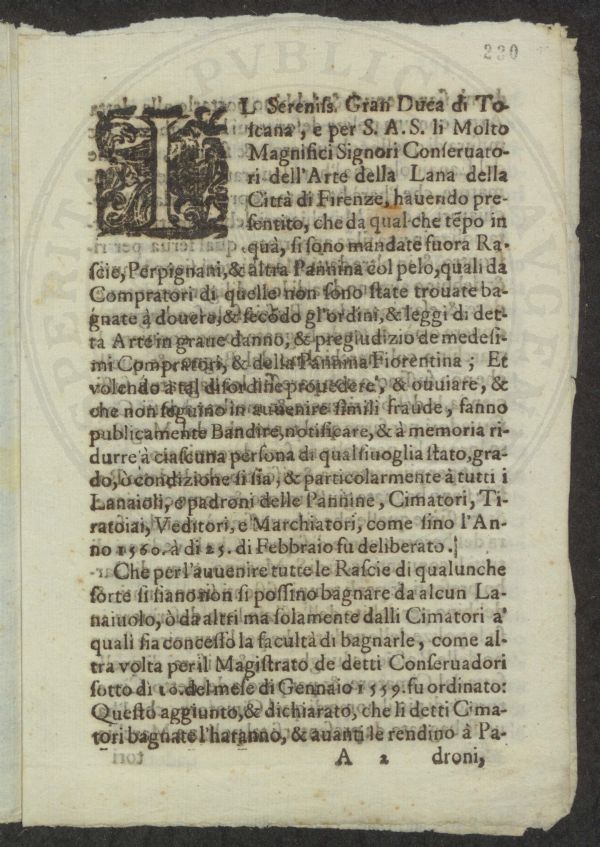 230
IL Sereniss. Gran Duca di To-
scana, e per S. A. S. li Molto
Magnifici Signori Conseruato-
ri dell'Arte della Lana della
Città di Firenze, hauendo pre-
sentito, che da qual che tẽpo in
quà, si sono mandate fuora Ra-
scie, Perpignani, & altra Pannina col pelo, quali da
Compratori di quelle non sono state trouate ba-
gnate à douere, & secōdo gl'ordini, & leggi di det-
ta Arte in graue danno, & pregiudizio de medesi-
mi Compratori, & della Pannina Fiorentina ; Et
volendo a tal disordine prouedere, & ouuiare, &
che non seguino in auuenire simili fraude, fanno
publicamente Bandire, notificare, & à memoria ri-
durre à ciascuna persona di qual siuoglia stato, gra-
do, ò condizione si sia, & particolarmente à tutti i
Lanaioli, e padroni delle Pannine, Cimatori, Ti-
ratoiai, Veditori, e Marchiatori, come sino l'An-
no 1560. à dì 25. di Febbraio fu deliberato.
Che per l'auuenire tutte le Rascie di qualunche
sorte si siano non si possino bagnare da alcun La-
naiuolo, ò da altri ma solamente dalli Cimatori a'
quali sia concesso la facultà di bagnarle, come al-
tra volta per il Magistrato de detti Conseruadori
sotto di 10. del mese di Gennaio 1559. fu ordinato:
Questo aggiunto, & dichiarato, che li detti Cima-
tori bagnate l'haranno, & auanti le rendino à Pa-
A 2 droni,